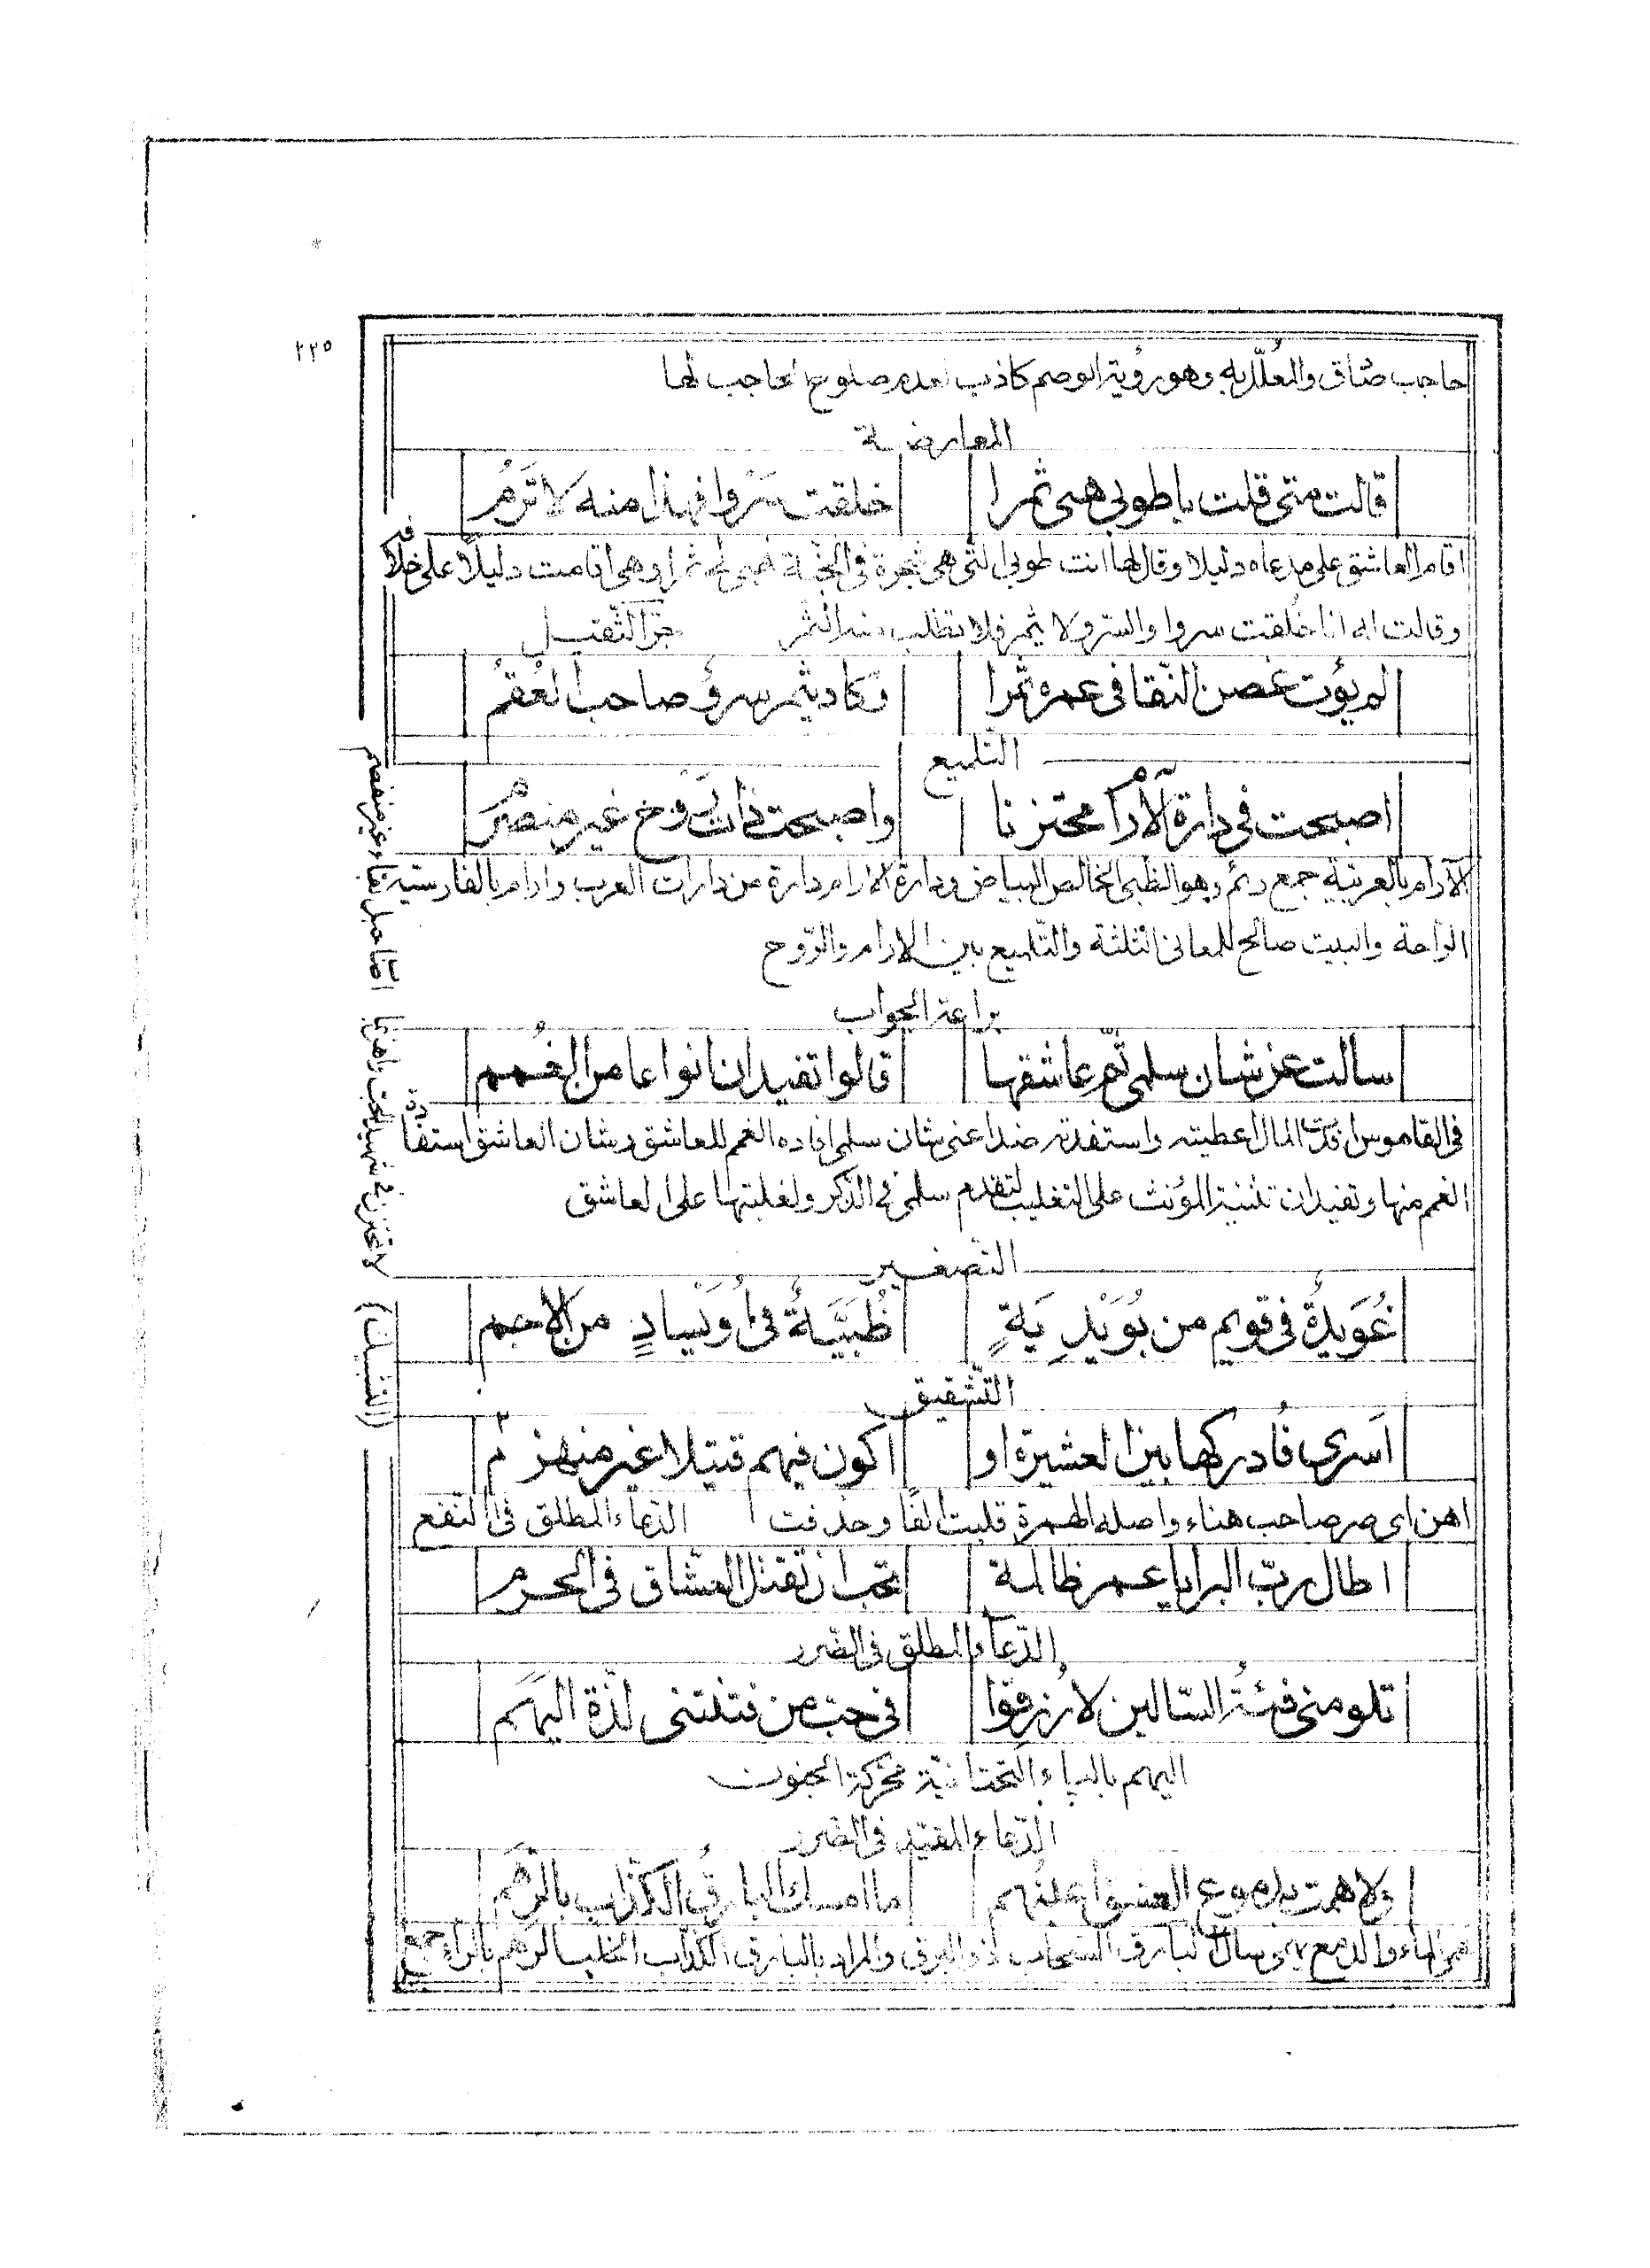 ٢٢٥
حاجب صادق والمعلّل به وهو رؤية الوصم كاذب لعدم صلوح الحاجب لها
المعارضة
قالت متى قلت يا طوبى هبى ثمرا خلقت سَرْوا فهذا منه لا تَرُمِ
اقام العاشق على مدعاه دليلا وقال لها انت طوبى التى هى شجرة فى الجنّة فهبى لى ثمرا وهى اقامت دليلاً على خلافه
وقالت له انا خُلقت سروا والسّرو لا يثمر فلا تطلب منه الثمر جرّ الثّقيل
لم يؤت غصن النّقا فى عمره ثمرا وكاد يثمر سروٌ صاحب العُقُمِ
التلميع
اصبحت فى دارة الآرام محتزنا واصبحت ذات رَوح غير منصرم
الآرام بالعربية جمع رئم وهو الظبى الخالص البياض ودارة الآرام دارة من دارات العرب وآرام بالفارسية
الراحة والبيت صالح للمعانى الثلثة والتّلميع بين الارام والرّوح
براعة الجواب
سالت عن شان سلمى ثمّ عاشقها قالوا تفيدان انواعا من الغُمم
فى القاموس افدت المال اعطيته واستفدته ضد اعنى شان سلمى افاده الغم للعاشق وشان العاشق استفادة
الغم منها وتفيدان تثنية المؤنث على التغليب لتقدم سلمى فى الذّكر ولغلبتها على العاشق
التصغير
غُوَيدةٌ فى قويم من بُوَيْدِيَةٍ ظُبَيَّةٌ فى أُوَيْسادٍ من الاجم
التّشقيق
اَسرى فأدركها بين العشيرة او اكون فيهم قتيلا غير منهزم
اهن اى صر صاحب هناء واصله الهمزة قلبت الفا وحذفت الدّعاء المطلق فى النفع
اطال ربّ البرايا عمر ظالمة تحب ان تقتل العشّاق فى الحرم
الدّعاء المطلق فى الضرر
تلومنى فئة السّالين لا رُزِقوا فى حبّ من فتنتنى لذّة اليَهَم
اليهم بالياء التحتانيّة محركة الجنون
الدّعاء المقيّد فى الضرر
ولا همت بدموع العشق اعينُهم ما امسك البارقُ الكذّاب بالرِّهَم
همى الماء والدمع يهمى سال البارق السّحاب ذو البرق والمراد بالبارق الكذّاب الخلب الرهم بالراء جمع